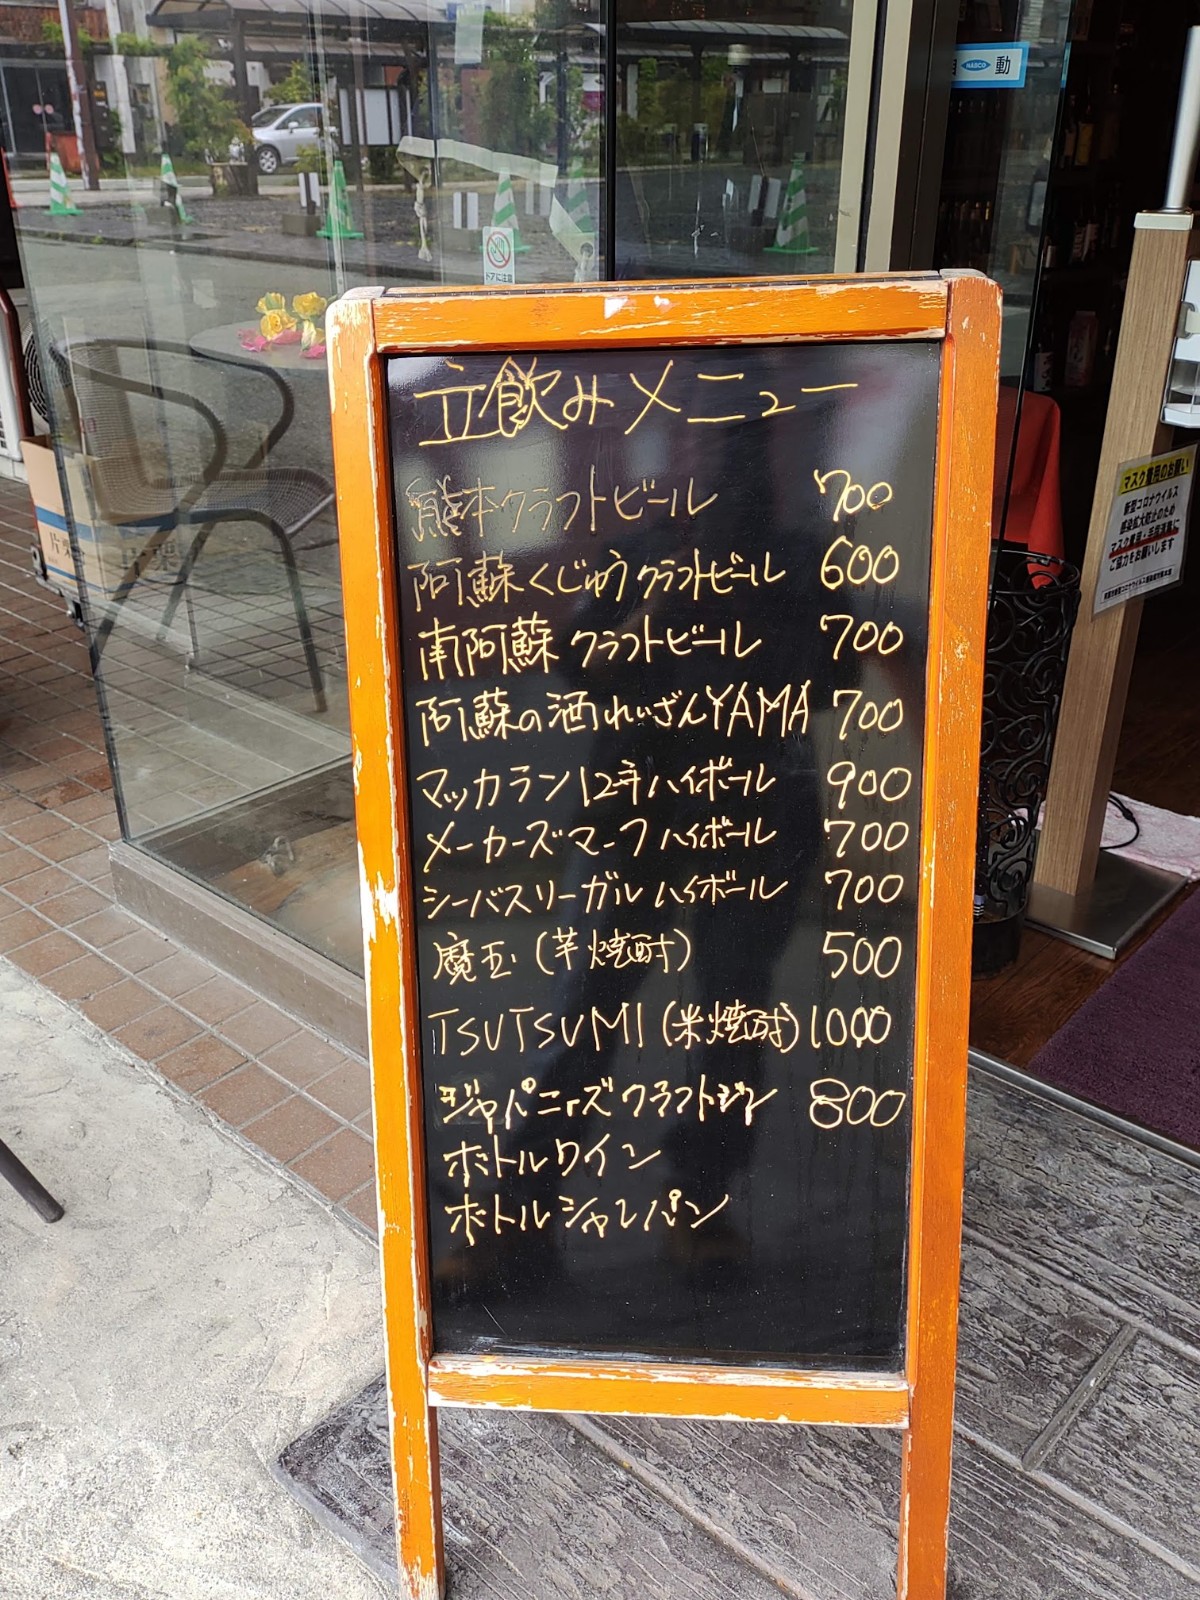 動
NABCO
ドアに注意
立飲みメニュー
熊本クラフトビール 700
阿蘇くじゅうクラフトビール 600
南阿蘇 クラフトビール 700
阿蘇の酒れいざんYAMA 700
マッカラン12年ハイボール 900
メーカーズマーク ハイボール 700
シーバスリーガル ハイボール 700
魔王(芋焼酎) 500
TSUTSUMI(米焼酎) 1000
ジャパニーズクラフトジン 800
ボトルワイン
ボトルシャンパン
マスク着用のお願い
新型コロナウイルス
感染拡大防止のため
マスク着用・手指消毒に
ご協力をお願いします